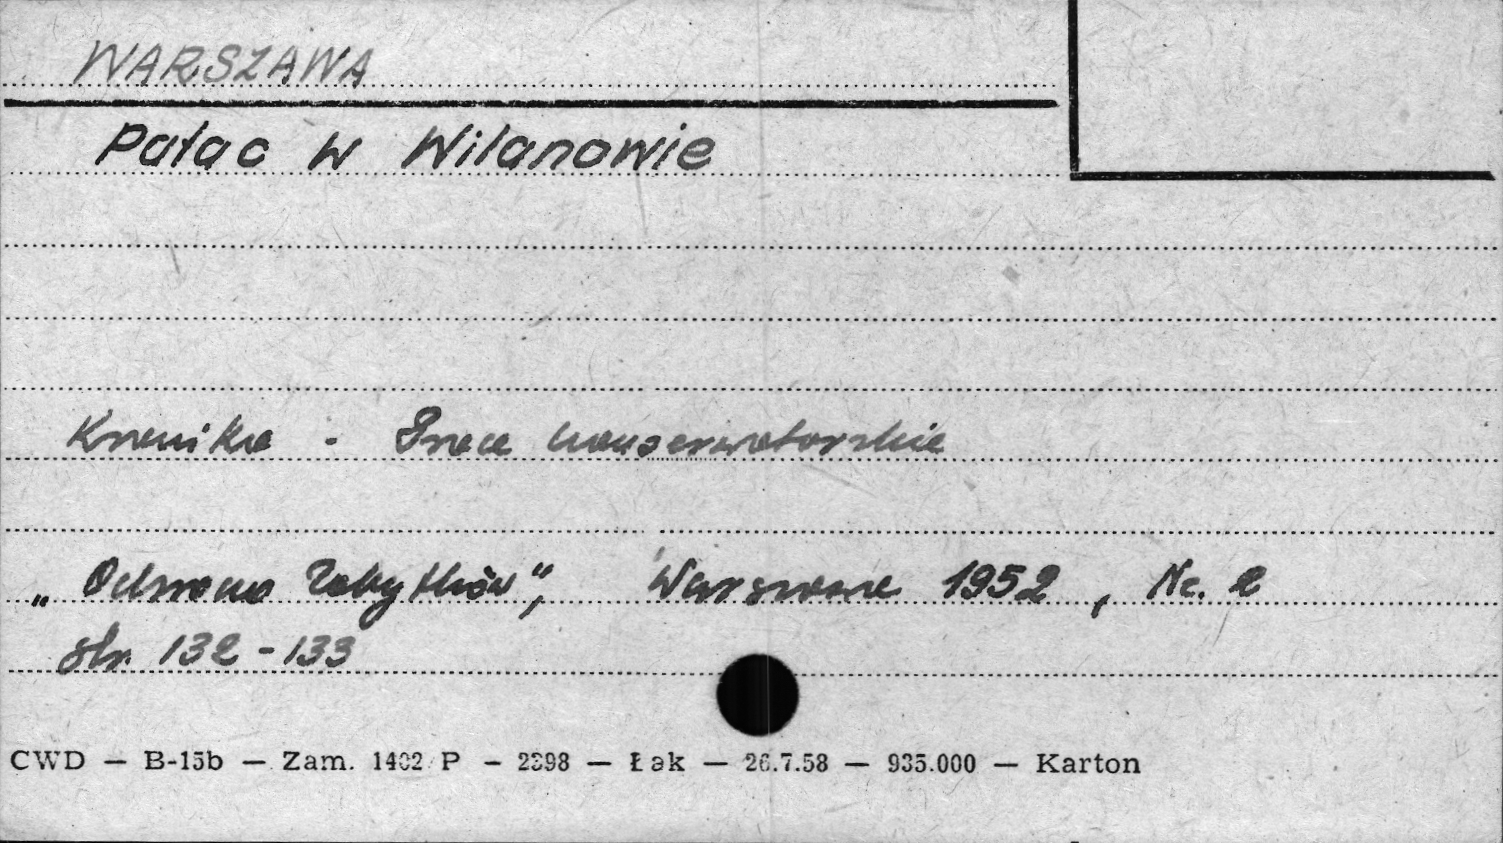 WARSZAWA
Pałac w Wilanowie
Kronika - Prace konserwatorskie
„Ochrona Zabytków", Warszawa 1952, Nr. 2
str. 132-133
CWD — B-15b — Zam. 1402 P — 2398 — Łak — 26.7.58 — 935.000 — Karton